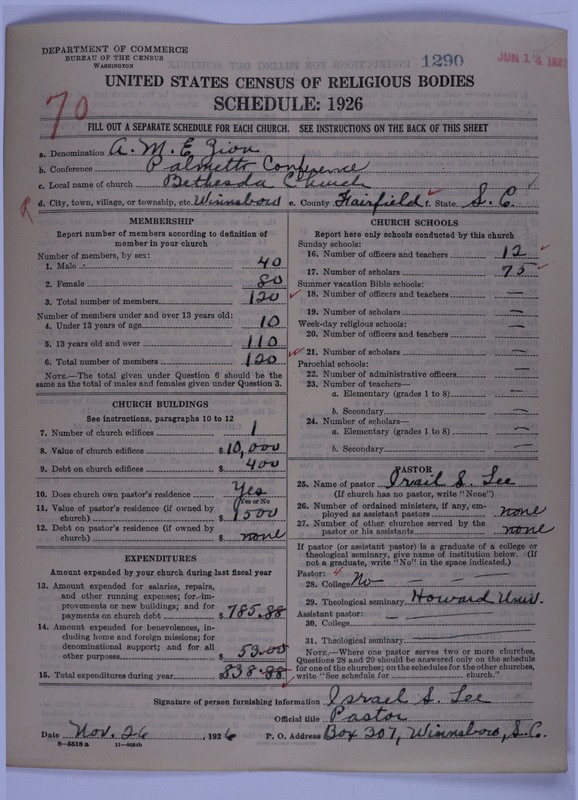 DEPARTMENT OF COMMERCE
BUREAU OF THE CENSUS
WASHINGTON
1290
JUN 14 1927
UNITED STATES CENSUS OF RELIGIOUS BODIES
SCHEDULE: 1926
70
FILL OUT A SEPARATE SCHEDULE FOR EACH CHURCH. SEE INSTRUCTIONS ON THE BACK OF THIS SHEET
a. Denomination A. M. E. Zion
b. Conference Palmetto Conference
c. Local name of church Bethesda Church
d. City, town, village, or township, etc. Winnsboro e. County Fairfield f. State S. C.
MEMBERSHIP
Report number of members according to definition of
member in your church
Number of members, by sex:
1. Male 40
2. Female 80
3. Total number of members 120
Number of members under and over 13 years old:
4. Under 13 years of age 10
5. 13 years old and over 110
6. Total number of members 120
NOTE.—The total given under Question 6 should be the
same as the total of males and females given under Question 3.
CHURCH BUILDINGS
See instructions, paragraphs 10 to 12
7. Number of church edifices 1
8. Value of church edifices $10,000
9. Debt on church edifices $ 400
10. Does church own pastor's residence Yes
(Yes or No)
11. Value of pastor's residence (if owned by
church) $1500
12. Debt on pastor's residence (if owned by
church) $ none
EXPENDITURES
Amount expended by your church during last fiscal year
13. Amount expended for salaries, repairs,
and other running expenses; for im-
provements or new buildings; and for
payments on church debt $785.88
14. Amount expended for benevolences, in-
cluding home and foreign missions; for
denominational support; and for all
other purposes $ 53.00
15. Total expenditures during year $838.88
CHURCH SCHOOLS
Report here only schools conducted by this church
Sunday schools:
16. Number of officers and teachers 12
17. Number of scholars 75
Summer vacation Bible schools:
18. Number of officers and teachers —
19. Number of scholars —
Week-day religious schools:
20. Number of officers and teachers —
21. Number of scholars —
Parochial schools:
22. Number of administrative officers —
23. Number of teachers—
a. Elementary (grades 1 to 8) —
b. Secondary —
24. Number of scholars—
a. Elementary (grades 1 to 8) —
b. Secondary —
PASTOR
25. Name of pastor Israil S. Lee
(If church has no pastor, write "None")
26. Number of ordained ministers, if any, em-
ployed as assistant pastors none
27. Number of other churches served by the
pastor or his assistants none
If pastor (or assistant pastor) is a graduate of a college or
theological seminary, give name of institution below. (If
not a graduate, write "No" in the space indicated.)
Pastor: 4
28. College No — — —
29. Theological seminary Howard Univ.
Assistant pastor:
30. College — — —
31. Theological seminary
NOTE.—Where one pastor serves two or more churches,
Questions 28 and 29 should be answered only on the schedule
for one of the churches; on the schedules for the other churches,
write "See schedule for church."
Signature of person furnishing information Israil S. Lee
Official title Pastor
Date Nov. 26, 1926 P. O. Address Box 207, Winnsboro, S. C.
8—5518 a 11—9264b